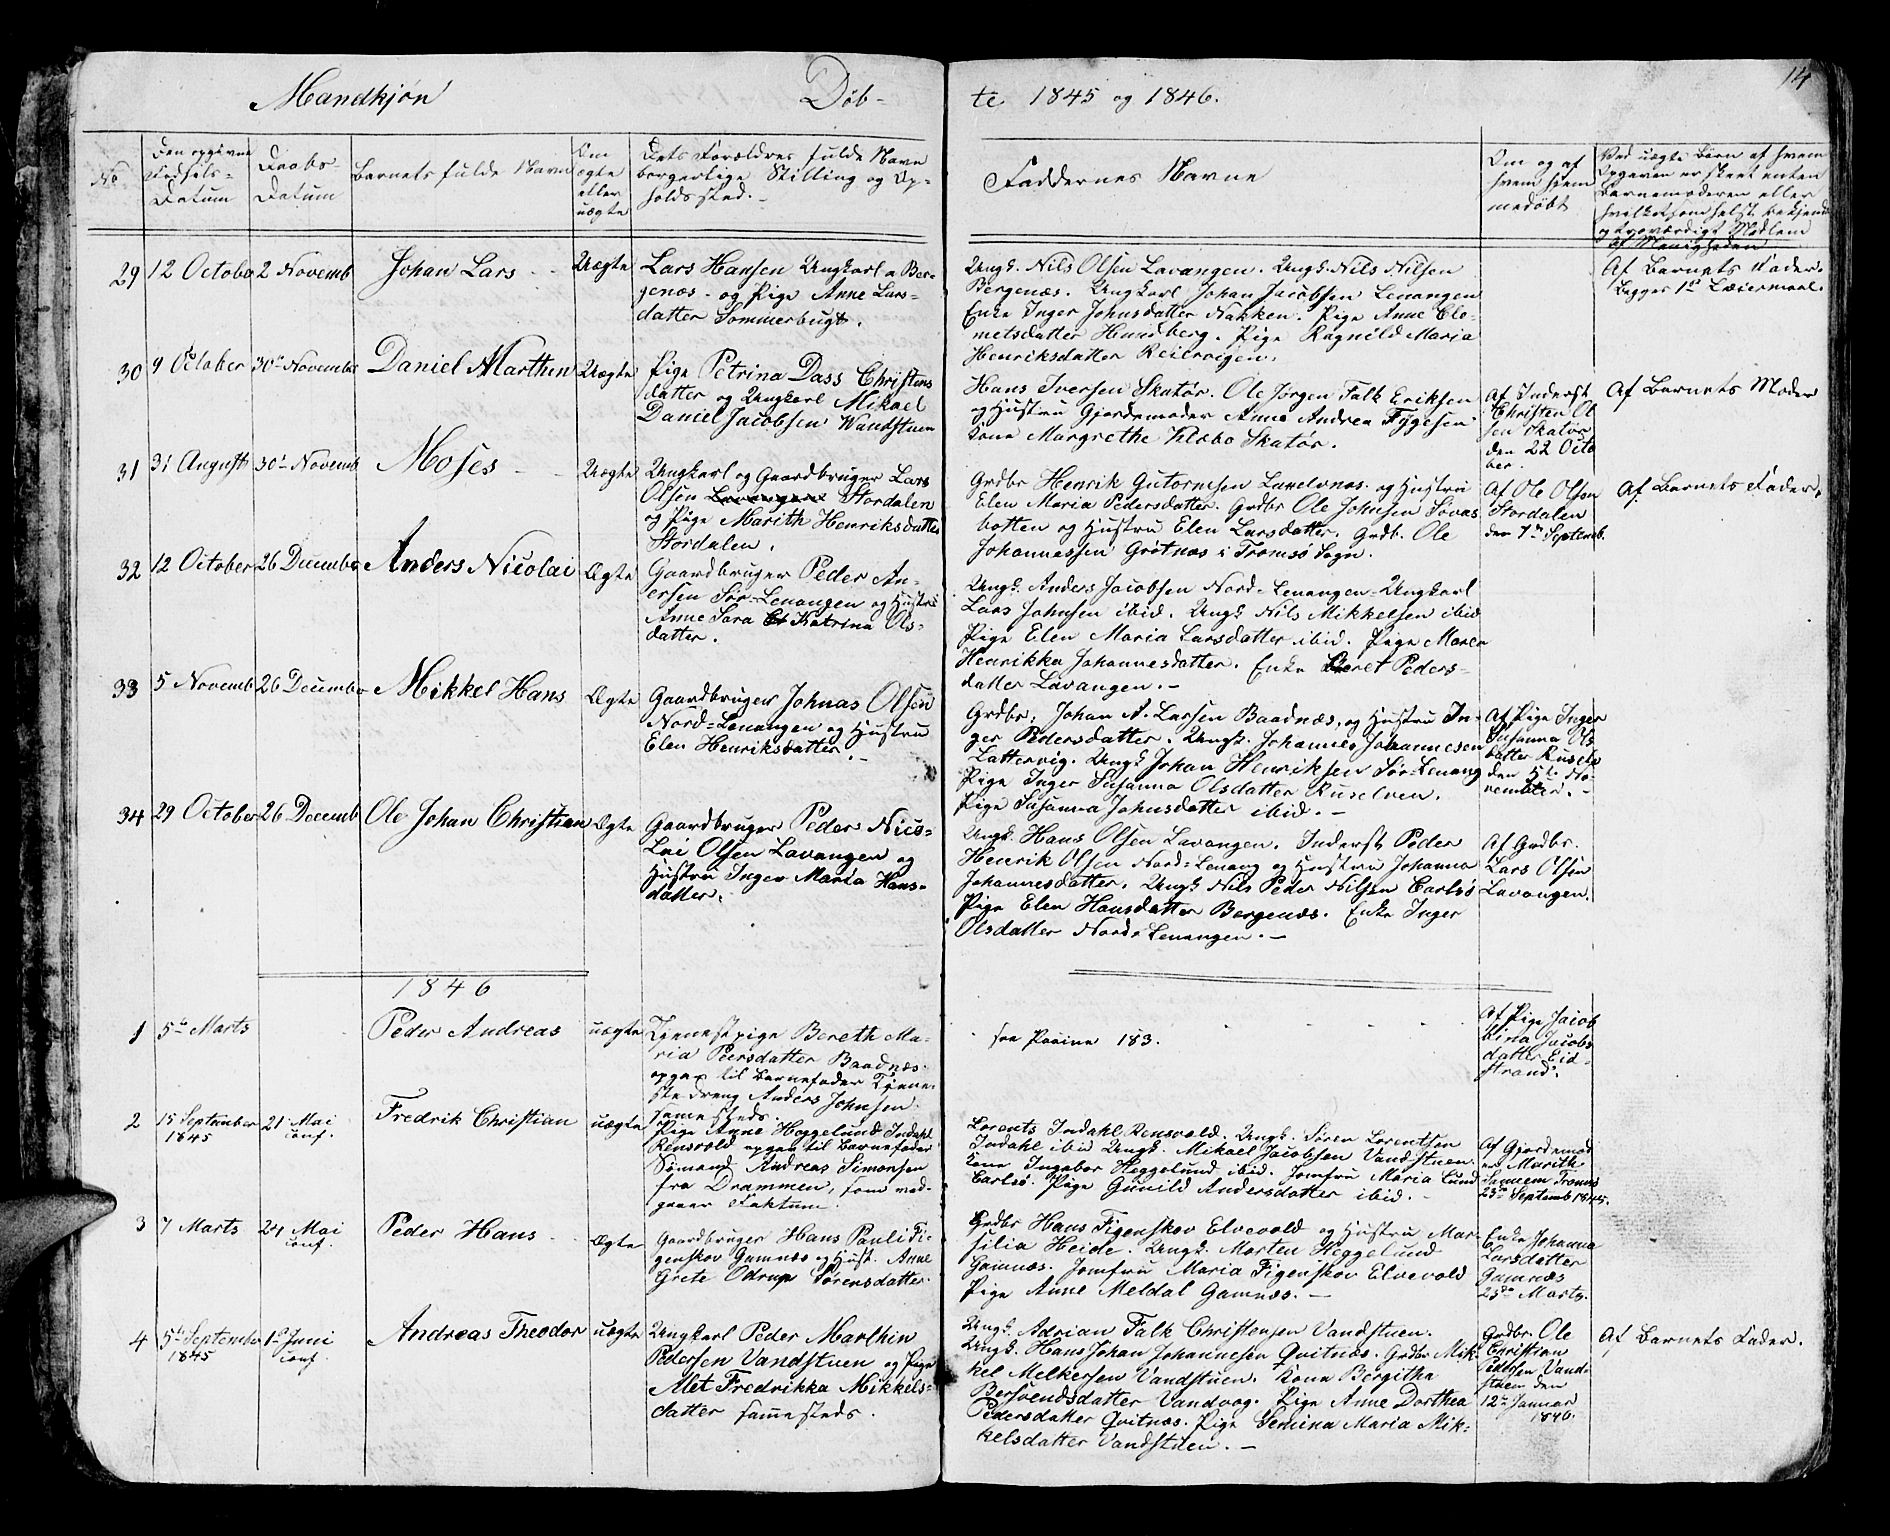 Mandkjøn Døb-
te 1845 og 1846.
14
No
Den opgivne
Fødsels-
Datum
Daabs-
Datum
Barnets fulde Navn
Om
ægte
eller
uægte
Dets Forældres fulde Navn
borgerlige Stilling og Op-
holdssted.
Faddernes Navne
Om og af
hvem hjem
medøbt
Ved uægte Børn af hvem
Opgaven er skeet enten
Barnemoderen eller
hvilketsomhelst bekjendt
og troværdigt Medlem
af Menigheden
29 12 October 2 Novemb Johan Lars Uægte
Lars Hansen Ungkarl a Ber-
genæs - og Pige Anne Lars-
datter Sommerbugt.
Ungk. Nils Olsen Lavangen. Ungk. Nils Nilsen
Bergenæs. Ungkarl Johan Jacobsen Lenangen
Enke Inger Johnsdatter Nakken. Pige Anne Cle-
metsdatter Hundberg. Pige Ragnild Maria
Henriksdatter Reiervigen.
Af Barnets Fader.
Begges 1ste Leiermaal.
30 9 October 30te November Daniel Marthin Uægte
Pige Petrina Dass Christens
datter og Ungkarl Mikael
Daniel Jacobsen Wandstuen
Hans Iversen Skatør. Ole Jørgen Falk Eriksen
og Hustru Gjordemoder Anne Andrea Fygesen
Kone Margrethe Klæbo Skatør.
Af Inderst
Christen Ol
sen Skatør
den 22 Octo
ber.
Af Barnets Moder
31 31 August 30te Novemb Moses Uægte
Ungkarl og Gaardbruger Lars
Olsen Lavangen Stordalen
og Pige Marith Henriksdatter
Stordalen.
Grdbr Henrik Gutormsen Landsnæs og Hustru
Elen Maria Pedersdatter. Grdbr Ole Johnsen Søvas
botten og Hustru Elen Larsdatter. Grdb. Ole
Johannessen Grøtnæs i Tromsø Sogn.
Af Ole Olsen
Stordalen
den 7de Septemb.
Af Barnets Fader.
32 12 October 26 December Anders Nicolai Ægte
Gaardbruger Peder An-
ersen Sør-Lenangen og Hustru
Anne Sara Katrina Ols-
datter.
Ungk. Anders Jacobsen Nord-Lenangen - Ungkarl
Lars Johnsen ibid. Ungk Nils Mikkelsen ibid
Pige Elen Maria Larsdatter ibid. Pige Maren
Henrikka Johannesdatter. Enke Beret Peders-
datter Lavangen. -
33 5 Novemb 26 December Mikkel Hans Ægte
Gaardbruger Johnas Olsen
Nord-Lenangen og Hustru
Elen Henriksdatter. -
Grdbr. Johan A. Larsen Baadnæs, og Hustru In-
ger Pedersdatter. Ungk. Johannes Johannesen
Lattervig. Ungk Johan Henriksen Sør-Lenang
Pige Inger Susanna Olsdatter Ruselven.
Pige Susanna Johnsdatter ibid. -
Af Pige Inger
Susanna Ols
datter Ruselv
den 5te No-
vember. -
34 29 October 26 Decemb Ole Johan Christian Ægte
Gaardbruger Peder Nico-
Lai Olsen Lavangen og
Hustru Inger Maria Hans-
datter.
Ungk. Hans Olsen Lavangen. Inderst Peder
Henrik Olsen Nord-Lenang og Hustru Johanna
Johannesdatter. Ungk Nils Peder Nilsen Carlsø
Pige Elen Hansdatter Bergenæs. Enke Inger
Olsdatter Nord-Lenangen. -
Af Grdbr.
Lars Olsen
Lavangen.
1846
1 5te Marts Peder Andreas uægte
Tjenestpige Bereth Ma-
ria Peersdatter Baadnæs
opgav til Barnefader Tjene-
ste dreng Anders Johnsen
sammesteds.
see Pagina 183.
Af Pige Jacob
bina Jacobs
datter Eid-
strand.
2 15 September 1845 21 Mai conf. Fredrik Christian uægte
Pige Anne Heggelund Indahl
Rensvold opgav til Barnefader
Sømand Andreas Simonsen
fra Drammen, som ved-
gaaer Faktum.
Lorents Indahl Rensvold. Ungk. Søren Lorentsen
Indahl ibid Ungk. Mikael Jacobsen Vandstuen.
Kone Ingebor Heggelund ibid. Jomfru Maria Lund
Carlsø. Pige Gunild Andersdatter ibid. -
Af Gjordemod
er Marith
Tromsø
23de Septemb 1845.
3 7 Marts 24 Mai conf. Peder Hans Ægte
Gaardbruger Hans Pauli Fi-
genskov Gamnæs og Hust. Anne
Grete Odrup Sørensdatter.
Grdbr Hans Figenskov Elvevold og Hustru Mar-
silia Heide. Ungk. Morten Heggelund
Gamnæs. Jomfru Maria Figenskov Elvevold
Pige Anne Meldal Gamnæs. -
Enke Johanna
Larsdatter
Gamnæs
23de Marts.
4 5te September 1845 1ste Juni conf. Andreas Theodor uægte
Ungkarl Peder Marthin
Pedersen Vandstuen og Pige
Met Fredrikka Mikkels-
datter sammesteds.
Ungk. Adrian Falk Christensen Vandstuen.
Ungk. Hans Johan Johannesen Qvitnæs. Grdbr Mik-
kel Melkersen Vandstuen. Kone Bergitha
Bersvendsdatter Vandvag. Pige Anne Dorthea
Pedersdatter Qvitnæs. Pige Semina Maria Mik-
kelsdatter Vandstuen. -
Grdbr. Ole
Christian
Pedersen Vand-
stuen den
12te Januar
1846.
Af Barnets Fader.